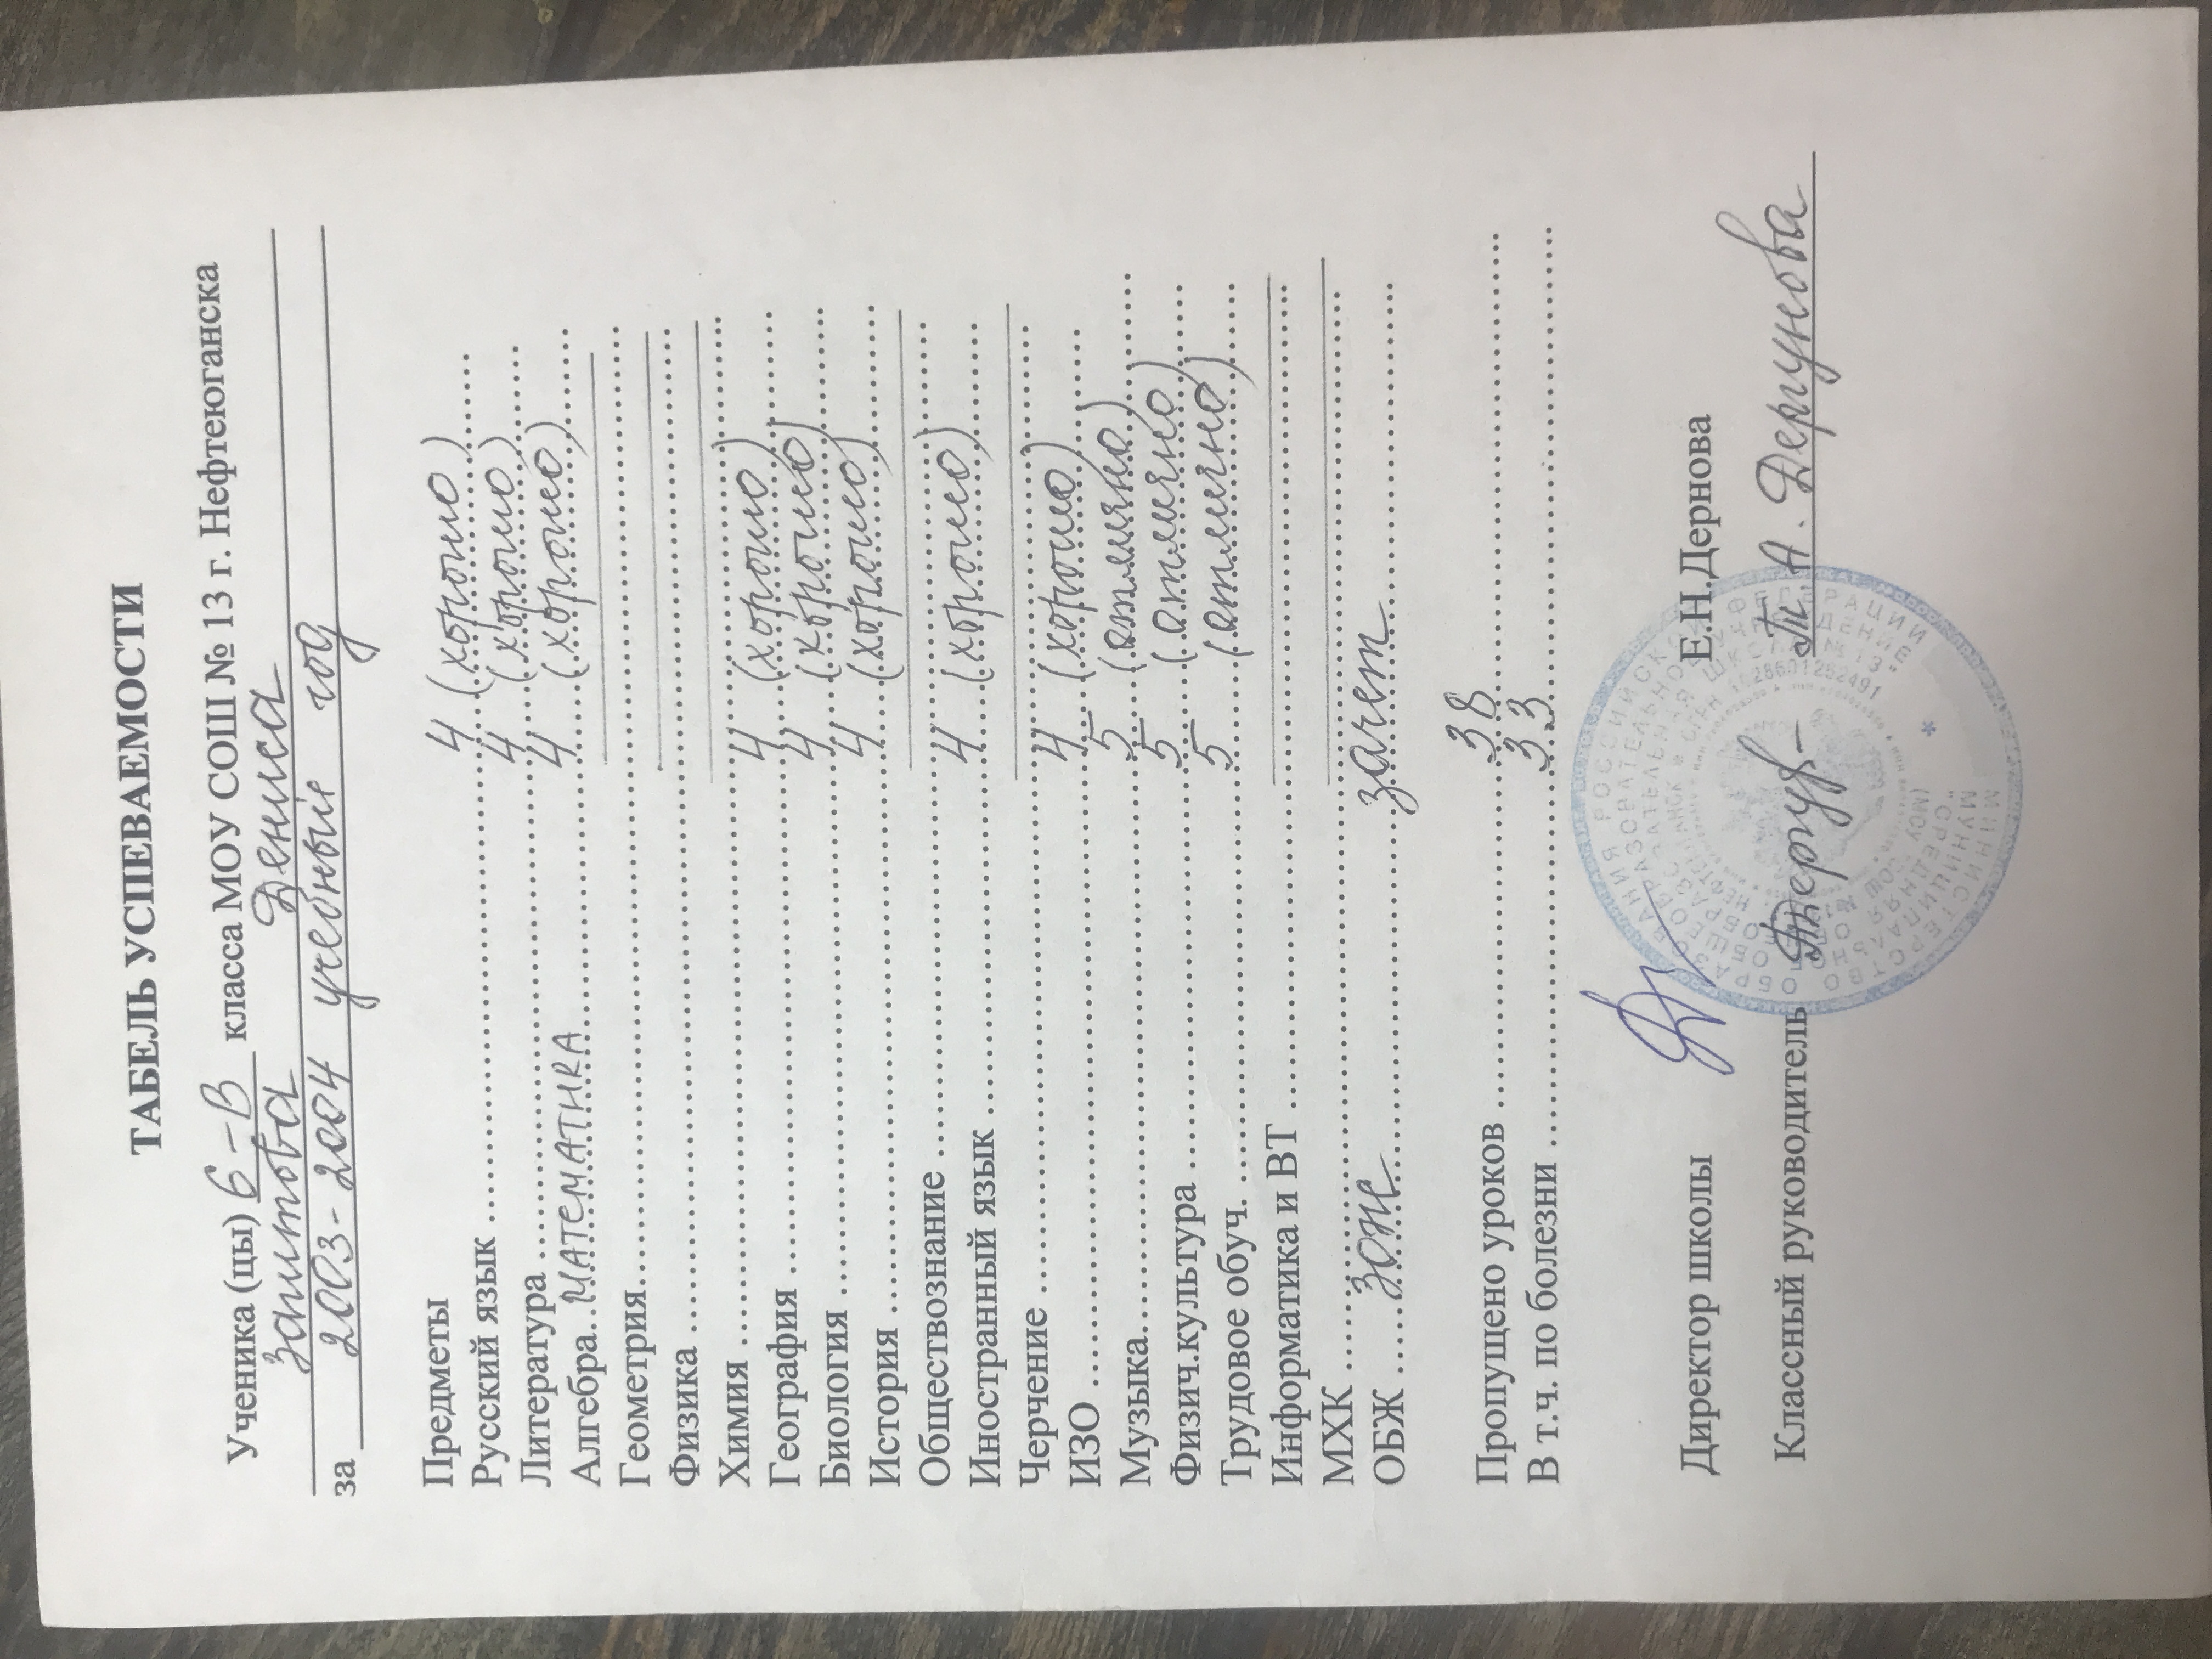 ТАБЕЛЬ УСПЕВАЕМОСТИ
Ученика (цы) 6-В класса МОУ СОШ № 13 г. Нефтеюганска
Заитова Дениса
за 2003-2004 учебный год
Предметы
Русский язык 4 (хорошо)
Литература 4 (хорошо)
Алгебра МАТЕМАТИКА 4 (хорошо)
Геометрия
Физика
Химия
География 4 (хорошо)
Биология 4 (хорошо)
История 4 (хорошо)
Обществознание
Иностранный язык 4 (хорошо)
Черчение
ИЗО 4 (хорошо)
Музыка 5 (отлично)
Физич.культура 5 (отлично)
Трудовое обуч. 5 (отлично)
Информатика и ВТ
МХК
ОБЖ ЗОЖ зачет
Пропущено уроков 38
В т.ч. по болезни 33
Директор школы Е.Н.Дернова
Классный руководитель Т А. Дергунова
МИНИСТЕРСТВО ОБРАЗОВАНИЯ РОССИЙСКОЙ ФЕДЕРАЦИИ
МУНИЦИПАЛЬНОЕ ОБЩЕОБРАЗОВАТЕЛЬНОЕ УЧРЕЖДЕНИЕ
"СРЕДНЯЯ ОБЩЕОБРАЗОВАТЕЛЬНАЯ ШКОЛА № 13"